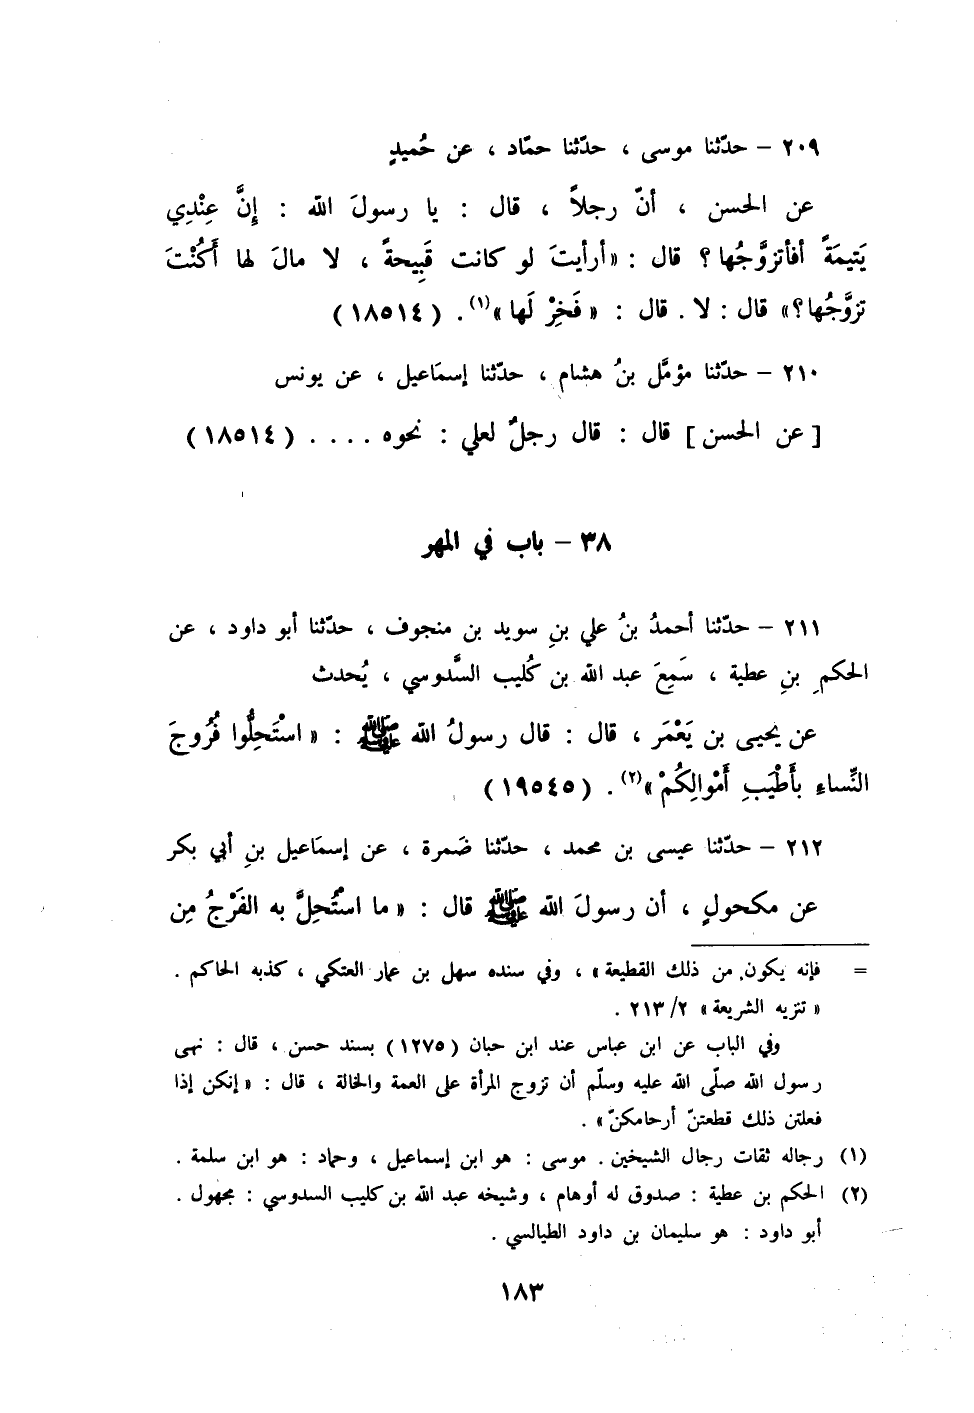 ٢٠٩ – حدّثنا موسى ، حدّثنا حمّاد ، عن حُميدٍ
عن الحسن ، أنّ رجلاً ، قال : يا رسولَ الله : إِنَّ عِنْدِي
يَتيمَةً أفأتزوَّجُها ؟ قال : «أرأيتَ لو كانت قَبِيحةً ، لا مالَ لها أَكُنْتَ
تزوَّجُها؟» قال : لا . قال : « فَخِرْ لَها »(١) . (١٨٥١٤)
٢١٠ – حدّثنا مؤمَّل بنُ هشام ، حدّثنا إسمَاعيل ، عن يونس
[ عن الحسن ] قال : قال رجلٌ لعلي : نحوه .... (١٨٥١٤)
٣٨ – باب في المهر
٢١١ – حدّثنا أحمدُ بنُ علي بنِ سويد بن منجوف ، حدّثنا أبو داود ، عن
الحكمِ بنِ عطية ، سَمِعَ عبد الله بن كُليب السَّدوسي ، يُحدث
عن يحيى بن يَعْمَر ، قال : قال رسولُ الله ﷺ : « اسْتَحِلُّوا فُرُوجَ
النِّساءِ بأَطْيَبِ أَمْوالِكُمْ »(٢) . (١٩٥٤٥)
٢١٢ – حدّثنا عيسى بن محمد ، حدّثنا ضَمرة ، عن إسمَاعيل بنِ أبي بكر
عن مكحولٍ ، أن رسولَ الله ﷺ قال : « ما اسْتُحِلَّ به الفَرْجُ مِن
= فإنه يكون من ذلك القطيعة » ، وفي سنده سهل بن عمار العتكي ، كذبه الحاكم .
« تنزيه الشريعة » ٢١٣/٢ .
وفي الباب عن ابن عباس عند ابن حبان (١٢٧٥) بسند حسن ، قال : نهى
رسول الله صلّى الله عليه وسلّم أن تزوج المرأة على العمة والخالة ، قال : « إنكن إذا
فعلتن ذلك قطعتنّ أرحامكنّ » .
(١) رجاله ثقات رجال الشيخين . موسى : هو ابن إسماعيل ، وحماد : هو ابن سلمة .
(٢) الحكم بن عطية : صدوق له أوهام ، وشيخه عبد الله بن كليب السدوسي : مجهول .
أبو داود : هو سليمان بن داود الطيالسي .
١٨٣